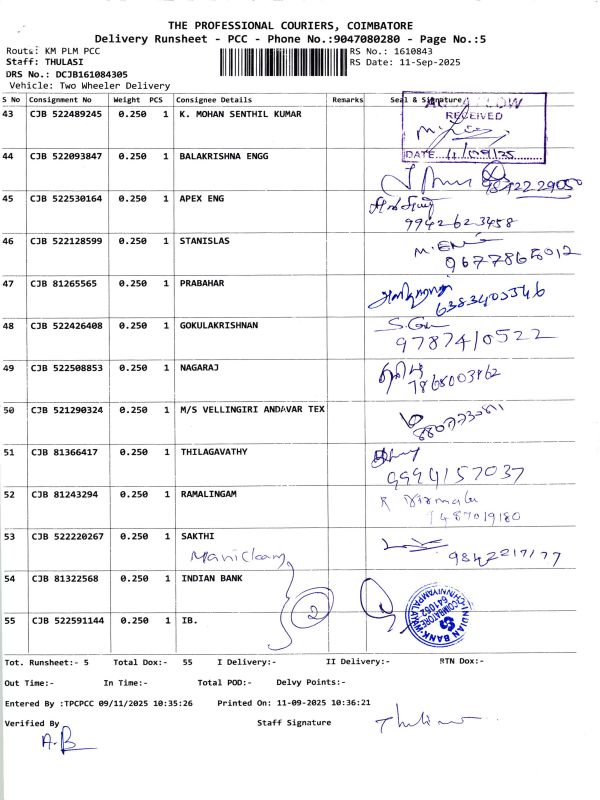 THE PROFESSIONAL COURIERS, COIMBATORE
Delivery Runsheet - PCC - Phone No.:9047080280 - Page No.:5
Route: KM PLM PCC RS No.: 1610843
Staff: THULASI RS Date: 11-Sep-2025
DRS No.: DCJB161084305
Vehicle: Two Wheeler Delivery
S No Consignment No Weight PCS Consignee Details Remarks Seal & Signature
43 CJB 522489245 0.250 1 K. MOHAN SENTHIL KUMAR
RECEIVED
DATE 11/09/25
44 CJB 522093847 0.250 1 BALAKRISHNA ENGG
45 CJB 522530164 0.250 1 APEX ENG
9942623458
46 CJB 522128599 0.250 1 STANISLAS
9677865012
47 CJB 81265565 0.250 1 PRABAHAR
6383403546
48 CJB 522426408 0.250 1 GOKULAKRISHNAN
9787410522
49 CJB 522508853 0.250 1 NAGARAJ
50 CJB 521290324 0.250 1 M/S VELLINGIRI ANDAVAR TEX
51 CJB 81366417 0.250 1 THILAGAVATHY
9994157037
52 CJB 81243294 0.250 1 RAMALINGAM
53 CJB 522220267 0.250 1 SAKTHI
Manickam
9842217177
54 CJB 81322568 0.250 1 INDIAN BANK
2
55 CJB 522591144 0.250 1 IB.
Tot. Runsheet:- 5 Total Dox:- 55 I Delivery:- II Delivery:- RTN Dox:-
Out Time:- In Time:- Total POD:- Delvy Points:-
Entered By :TPCPCC 09/11/2025 10:35:26 Printed On: 11-09-2025 10:36:21
Verified By Staff Signature
A.B